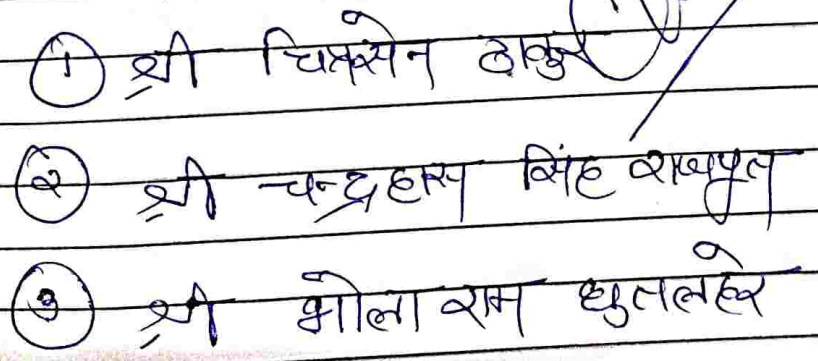 ① श्री चित्रसेन ठाकुर
② श्री चन्द्रहास सिंह राजपूत
③ श्री भोला राम धृतलहरे